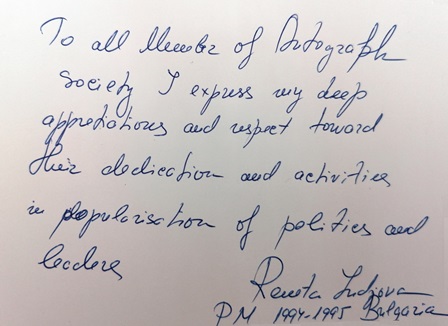 To all Member of Autograph
Society I express my deep
appretiations and respect toward
their dedication and activities
in popularisation of politics and
leaders
Reneta Indjova
PM 1994-1995 Bulgaria